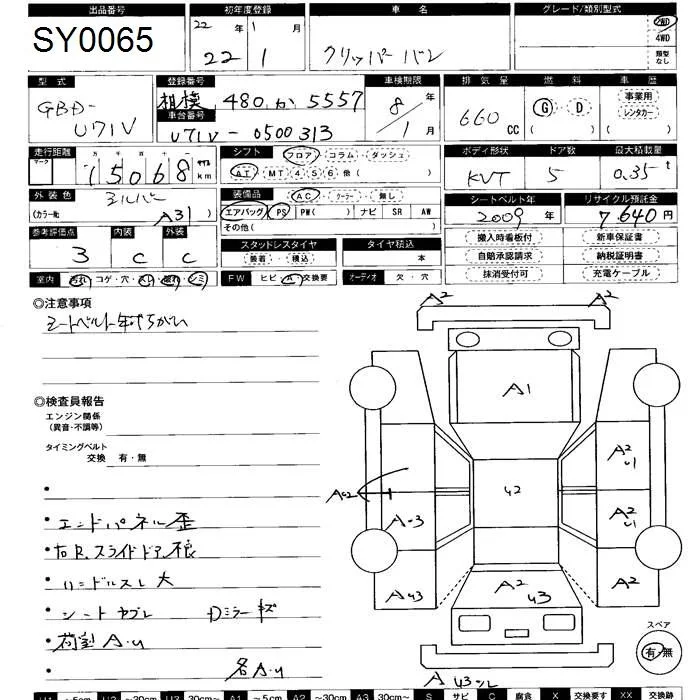 出品番号 初年度登録 車名 グレード/類別型式
SY0065 22年 1月 クリッパー バン 2WD
22 1 4WD
類型なし
型式 登録番号 車検期限 排気量 燃料 車歴
GBD-U71V 相模 480 か 5557 8年 660cc G・D 事業用
車台番号 レンタカー
U71V-0500313 1月 ( ) ( )
走行距離 シフト フロア・コラム・ダッシュ ボディ形状 ドア数 最大積載量
マーク 十 万 千 百 十 一
15068 km AT・MT (4・5・6 他( ) KVT 5 0.35t
外装色 装備品 AC・クーラー・無し シートベルト年 リサイクル預託金
シルバー エアバッグ PS PW( ) ナビ SR AW 2009年 7,640円
(カラーNo. A31) その他( )
参考評価点 内装 外装 スタッドレスタイヤ タイヤ積込 搬入時看板付 新車保証書
3 C C 装着・積込 本 自賠承認請求 納税証明書
室内 汚れ・コゲ・穴・スレ・破れ・シミ FW ヒビ・A・交換要 オーディオ 欠・穴 抹消受付可 充電ケーブル
◎注意事項
シートベルト年式ちがい
◎検査員報告
エンジン関係
(異音・不調等)
タイミングベルト
交換 有・無
・
・エンドパネル歪
・右R.スライドドア痕
・ハンドルスレ大
・シートヤブレ Dミラーキズ
・荷室A.U
・ 各A.U
A2 A2
A1
A2 U1
U2
AU2
AU3
A2 U1
AU3
A2 U3
A2
A U3
スペア
有・無
U1 ~5cm U2 ~30cm U3 30cm~ A1 ~5cm A2 ~30cm A3 30cm~ S サビ C 腐食 X 交換要す XX 交換跡